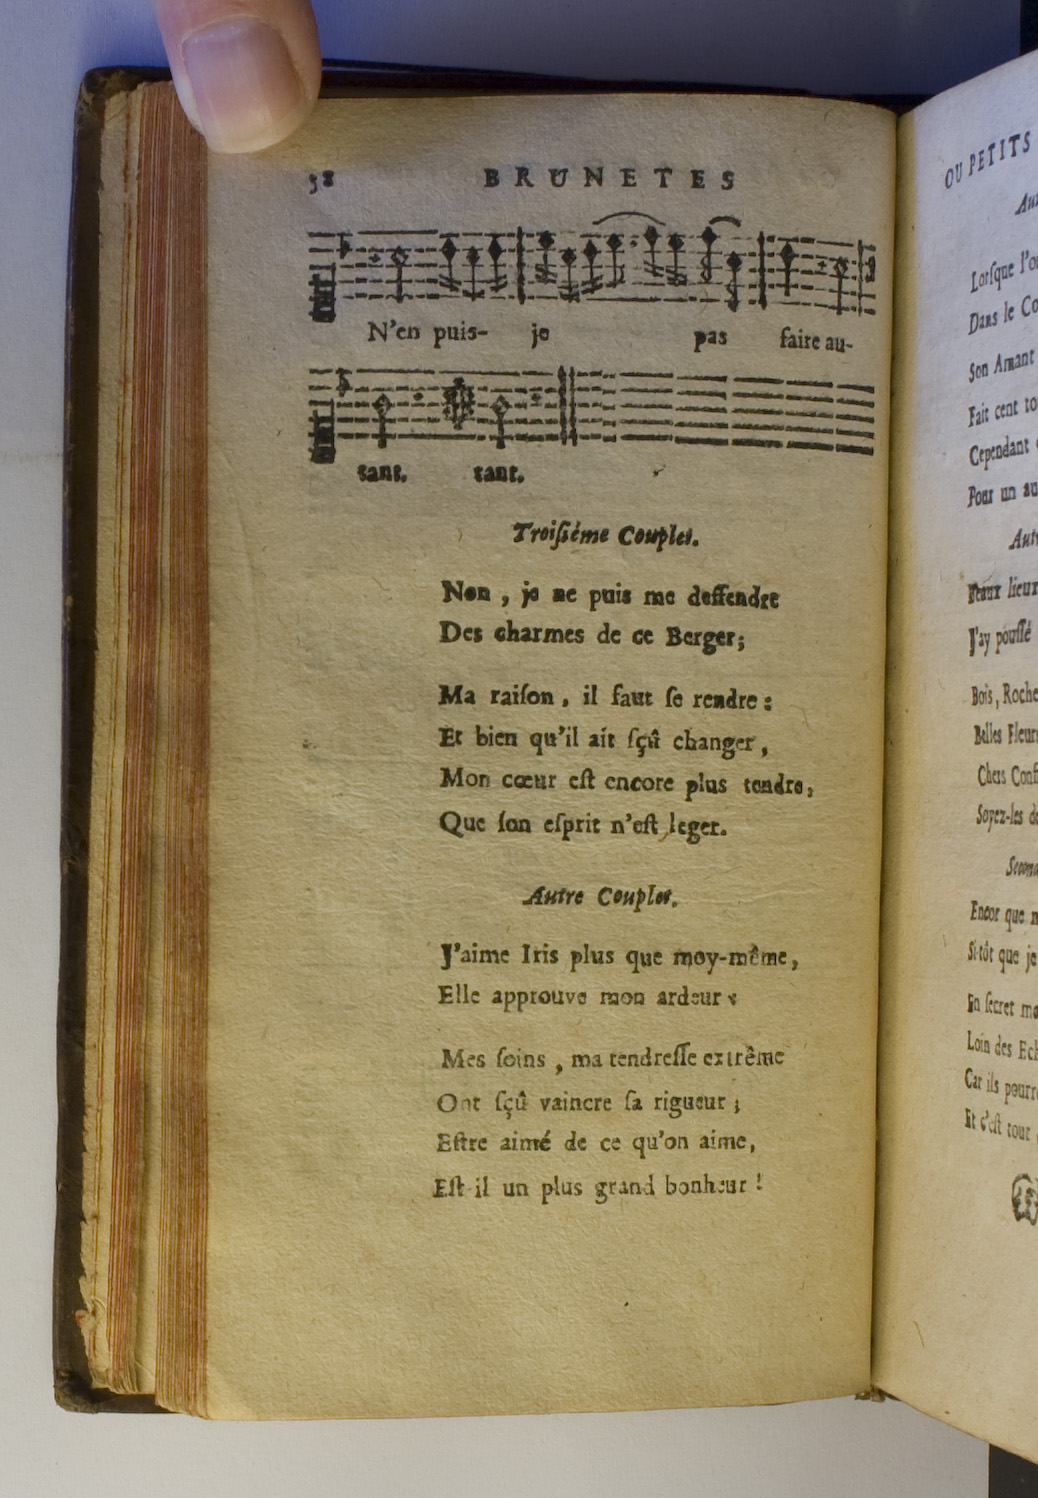 58 BRUNETES
N'en puis- je pas faire au-
tant. tant.
Troiſiéme Couplet.
Non, je ne puis me deffendre
Des charmes de ce Berger;
Ma raiſon, il faut ſe rendre:
Et bien qu'il ait ſçû changer,
Mon cœur eſt encore plus tendre,
Que ſon eſprit n'eſt leger.
Autre Couplet.
J'aime Iris plus que moy-même,
Elle approuve mon ardeur:
Mes ſoins, ma tendreſſe extrême
Ont ſçû vaincre ſa rigueur;
Eſtre aimé de ce qu'on aime,
Eſt-il un plus grand bonheur!
OU PETITS
Lorſque
Dans le
Son Amant
Fait cent
Cependant
Pour un
Beaux lieux
J'ay pouſſé
Bois, Roche
Belles Fleurs
Chers
Soyez-les
Encor que
Si-tôt que je
En ſecret
Loin des
Car ils
Et c'eſt tout